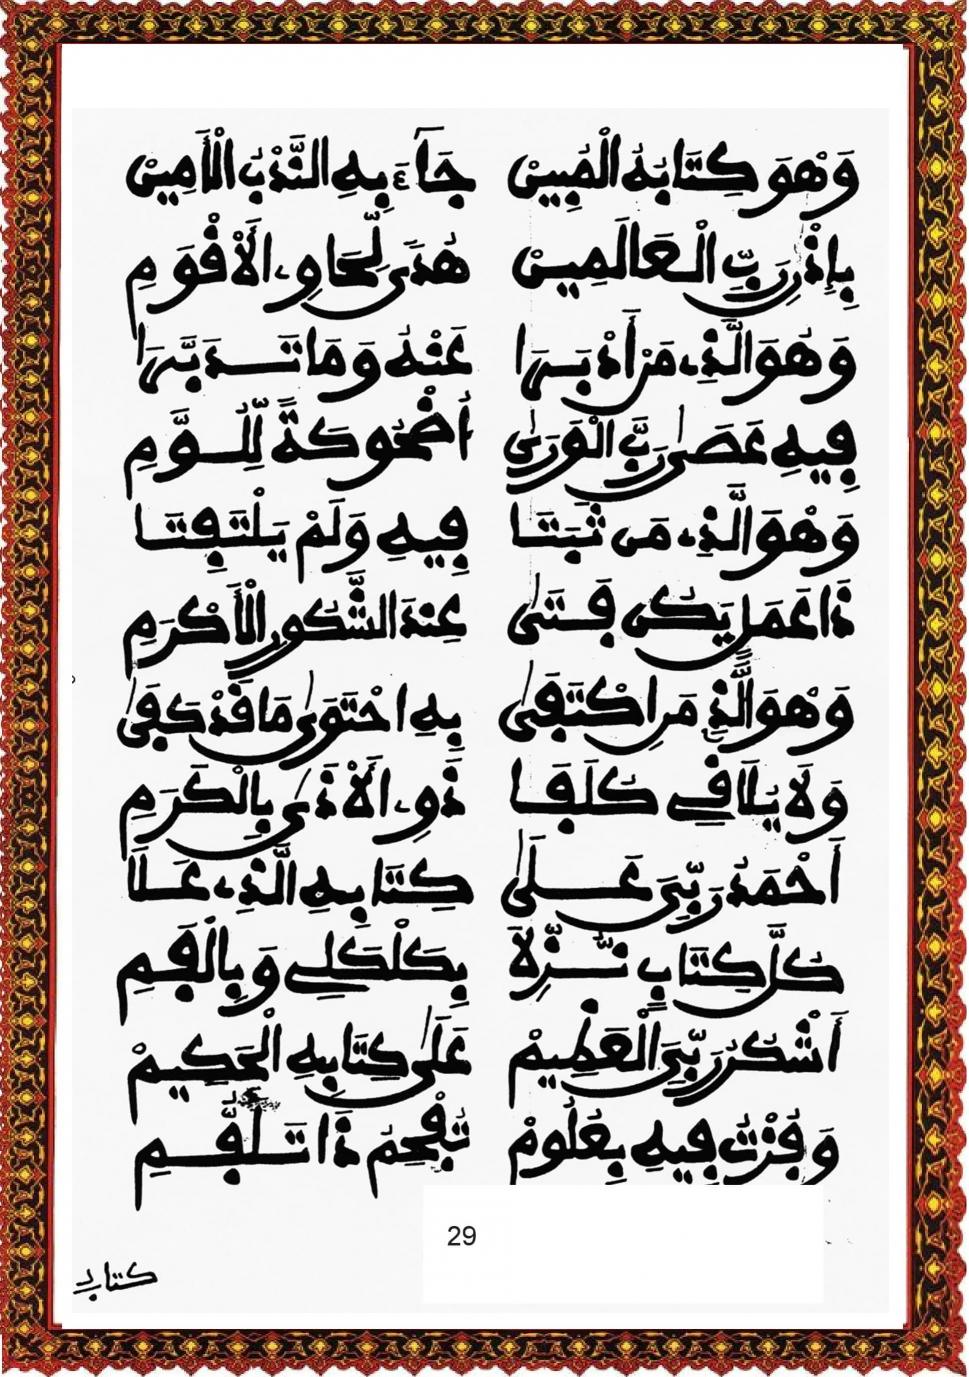 وَهْوَ كِتَابُهُ الْمُبِينْ جَآءَ بِهِ النَّدْبُ الْأَمِينْ
بِإِذْنِ رَبِّ الْعَالَمِينْ هُدَىً لِحَاوِ، الْأَقْوَمِ
وَهُوَ الَّذِ، مَنْ أَدْبَرَا عَنْهُ وَمَا تَدَبَّرَا
فِيهِ عَصَىٰ رَبَّ الْوَرَىٰ أُضْحُوكَةً لِّلُوَّمِ
وَهْوَ الَّذِ، مَن ثَبَتَا فِيهِ وَلَمْ يَلْتَفِتَا
ذَا عَمَلٍ يَكُن فَتَىٰ عِندَ الشَّكُورِ الْأَكْرَمِ
وَهْوَ الَّذِ مَنِ اكْتَفَىٰ بِهِ احْتَوَىٰ مَا قَدْ كَفَىٰ
وَلَا يُلَافِي كَلَفَا ذُو، الْأَذَىٰ بِالْكَرَمِ
أَحْمَدُ رَبِّيَ عَلَىٰ كِتَابِهِ الَّذِ، عَلَا
كُلَّ كِتَابٍ نُزِّلَا بِكَلْكَلِي وَبِالْفَمِ
أَشْكُرُ رَبِّيَ الْعَظِيمْ عَلَىٰ كِتَابِهِ الْحَكِيمْ
وَفُزْتُ فِيهِ بِعُلُومْ تُفْحِمُ ذَا تَلَقُّمِ
29
كتاب